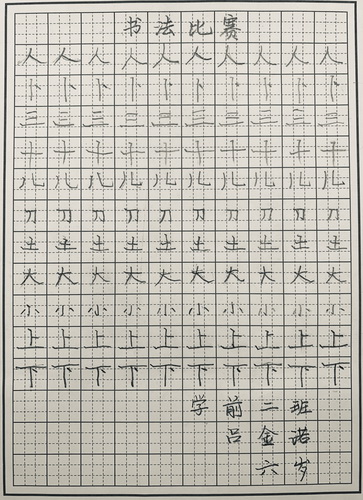 书法比赛
人人人人人人人人人人
卜卜卜卜卜卜卜卜卜卜
三三三三三三三三三三
十十十十十十十十十十
儿儿儿儿儿儿儿儿儿儿
刀刀刀刀刀刀刀刀刀刀
土土土土土土土土土土
大大大大大大大大大大
小小小小小小小小小小
上上上上上上上上上上
下下下下下下下下下下
学前二班
吕金诺
六岁